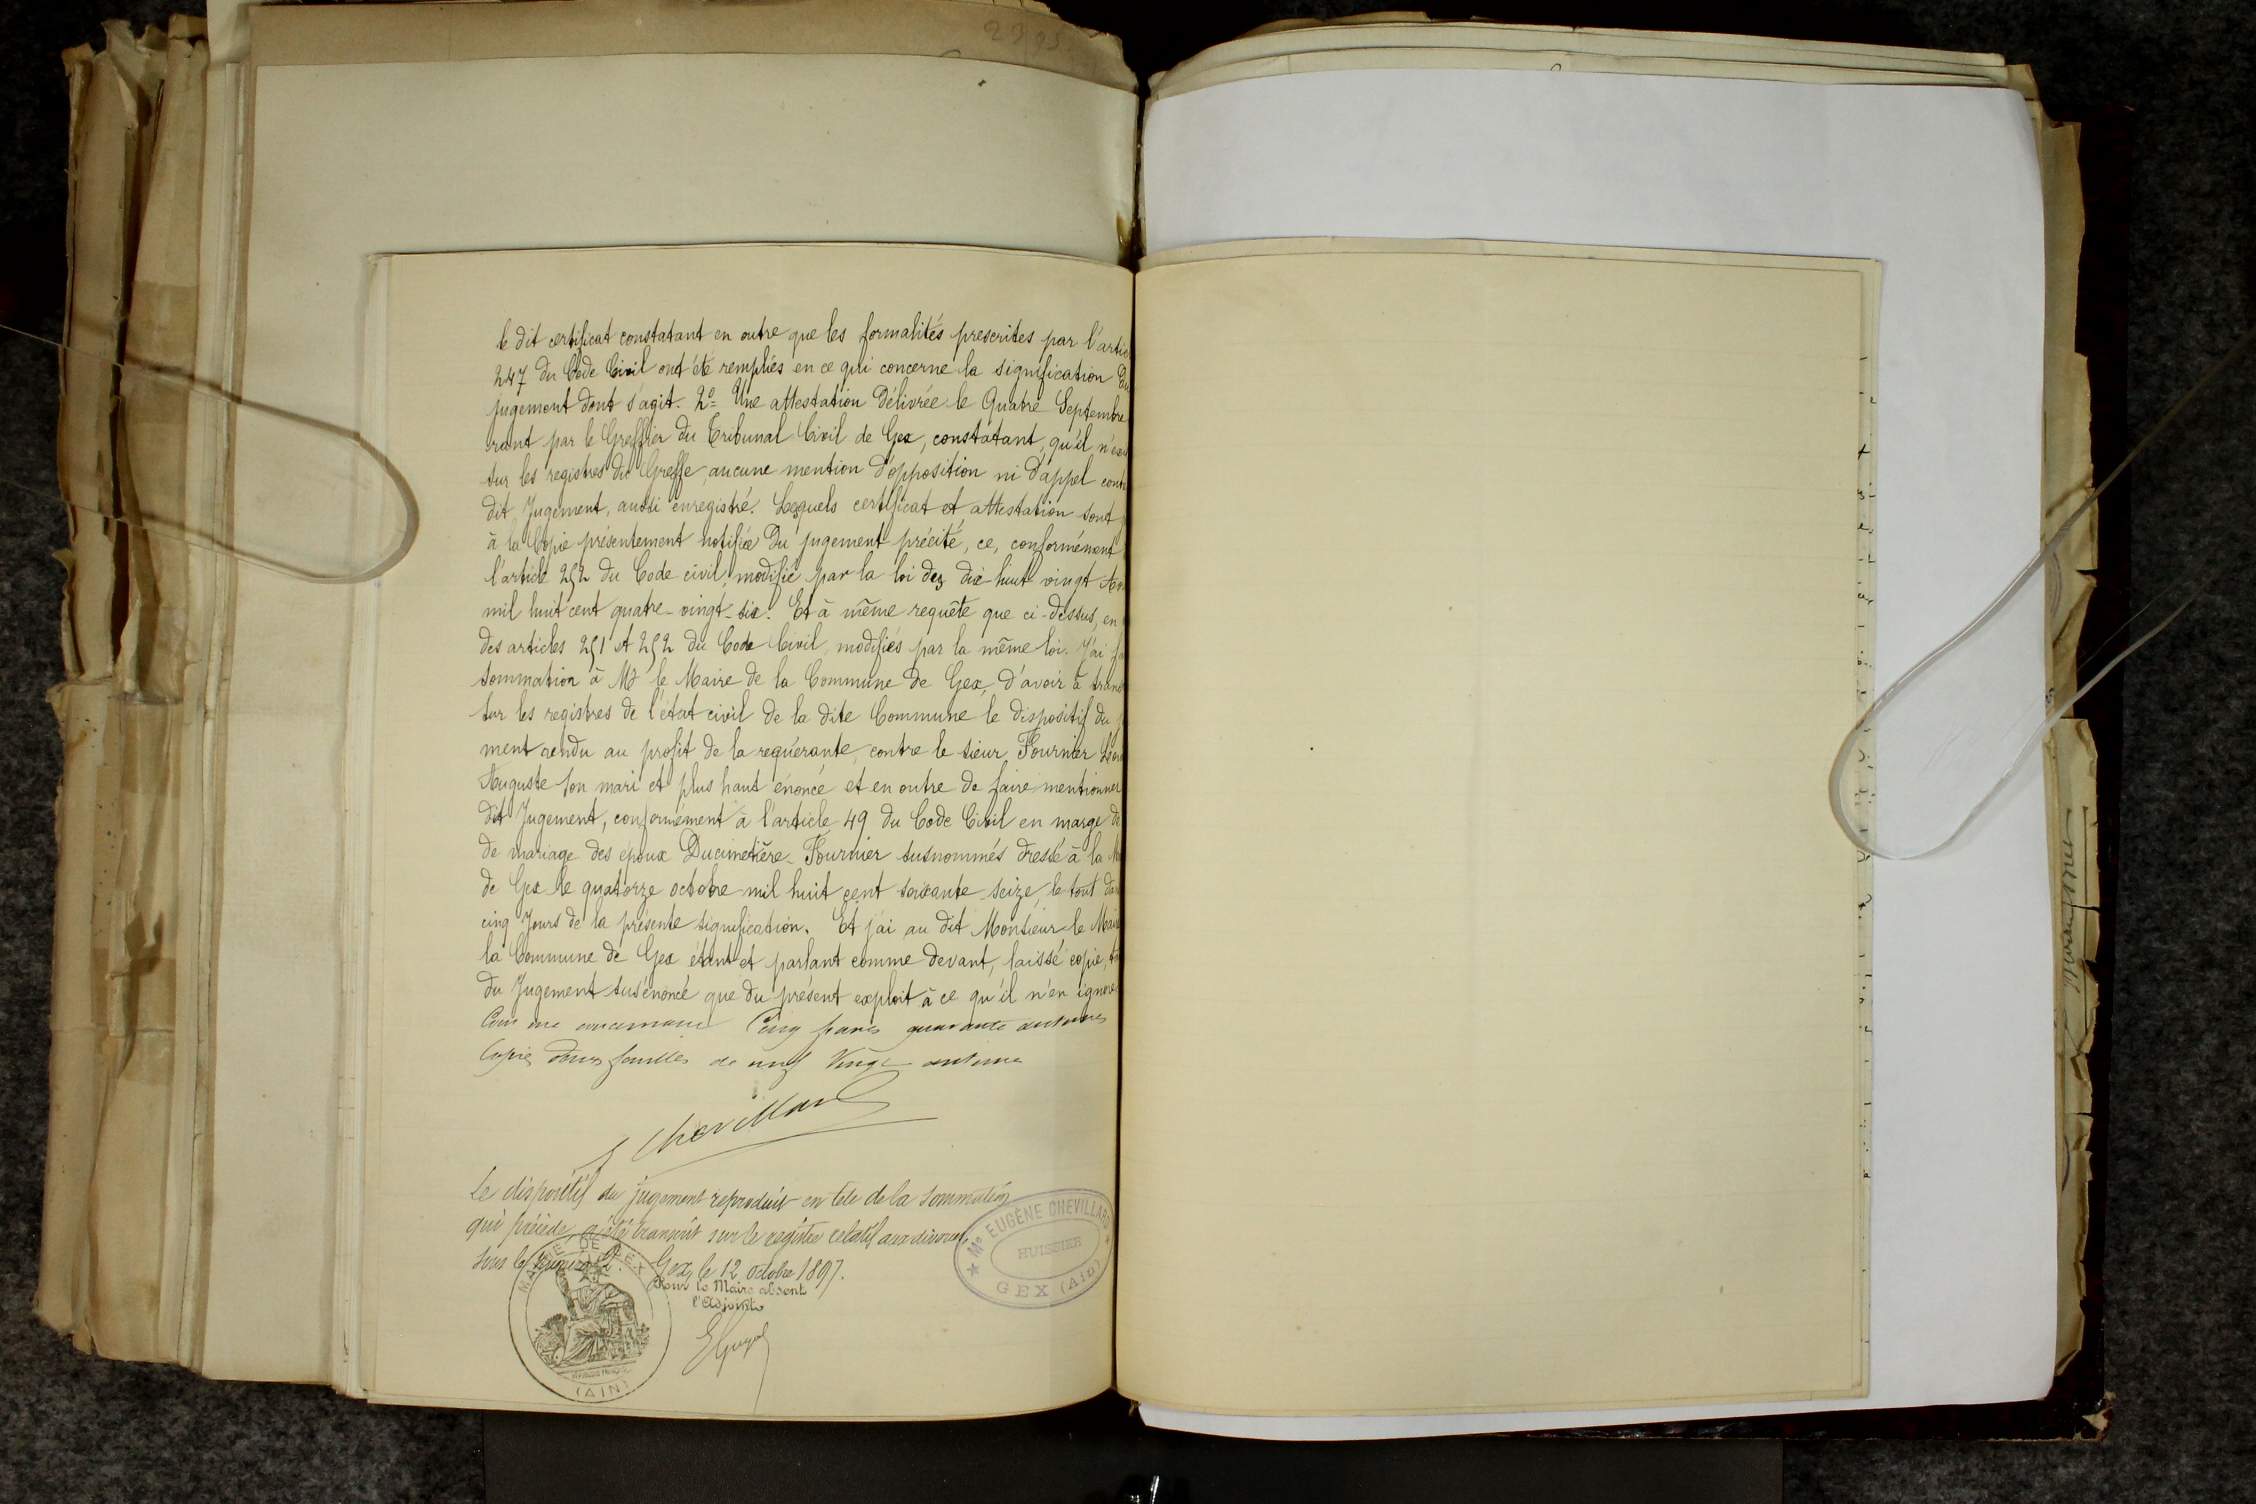 le dit certificat constatant en outre que les formalités prescrites par l'artic
247 du Code Civil ont été remplies en ce qui concerne la signification du
jugement dont s'agit. 2º= Une attestation délivrée le Quatre Septembre
rant par le Greffier du Tribunal Civil de Gex, constatant, qu'il n'ex
sur les registres du Greffe, aucune mention d'opposition ni d'appel cont
dit Jugement, aussi enregistré. Lesquels certificat et attestation sont
à la Copie présentement notifiée du jugement précité, ce, conformément
l'article 252 du Code civil, modifié par la loi des dix huit vingt Av
mil huit cent quatre-vingt-six. Et à même requête que ci-dessus, en
des articles 251 et 252 du Code Civil, modifiés par la même loi. J'ai fa
sommation à Mr le Maire de la Commune de Gex, d'avoir à trans
sur les registres de l'état civil de la dite Commune le dispositif du
ment rendu au profit de la requérante, contre le sieur Fournier
Auguste son mari et plus haut énoncé et en outre de faire mentionner
dit Jugement, conformément à l'article 49 du Code Civil en marge de
de mariage des époux Ducimetière-Fournier susnommés dressé à la M
de Gex le quatorze octobre mil huit cent soixante-seize, le tout da
cinq Jours de la présente signification. Et j'ai au dit Monsieur le Mair
la Commune de Gex étant et parlant comme devant, laissé copie, t
du Jugement susénoncé que du présent exploit à ce qu'il n'en ignore
Cinq francs quarante centimes
Copies deux feuilles de un f Vingt centimes
E Chevillard
Le dispositif du jugement reproduit en tête de la sommation
qui précède, a été transcrit sur le registre relatif aux divorces,
sous le numéro 2. Gex, le 12 octobre 1897.
Pour le Maire absent
l'Adjoint
MAIRIE DE GEX
(AIN)
★ Me EUGÈNE CHEVILLARD ★
HUISSIER
GEX (Ain)